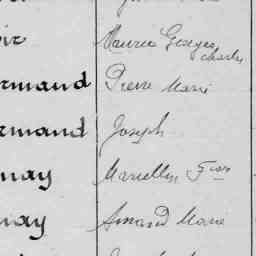 oir Maurice Georges
Charles
rmand Pierre Marie
rmand Joseph
nay Marcellin Fçois
nay Amand Marie